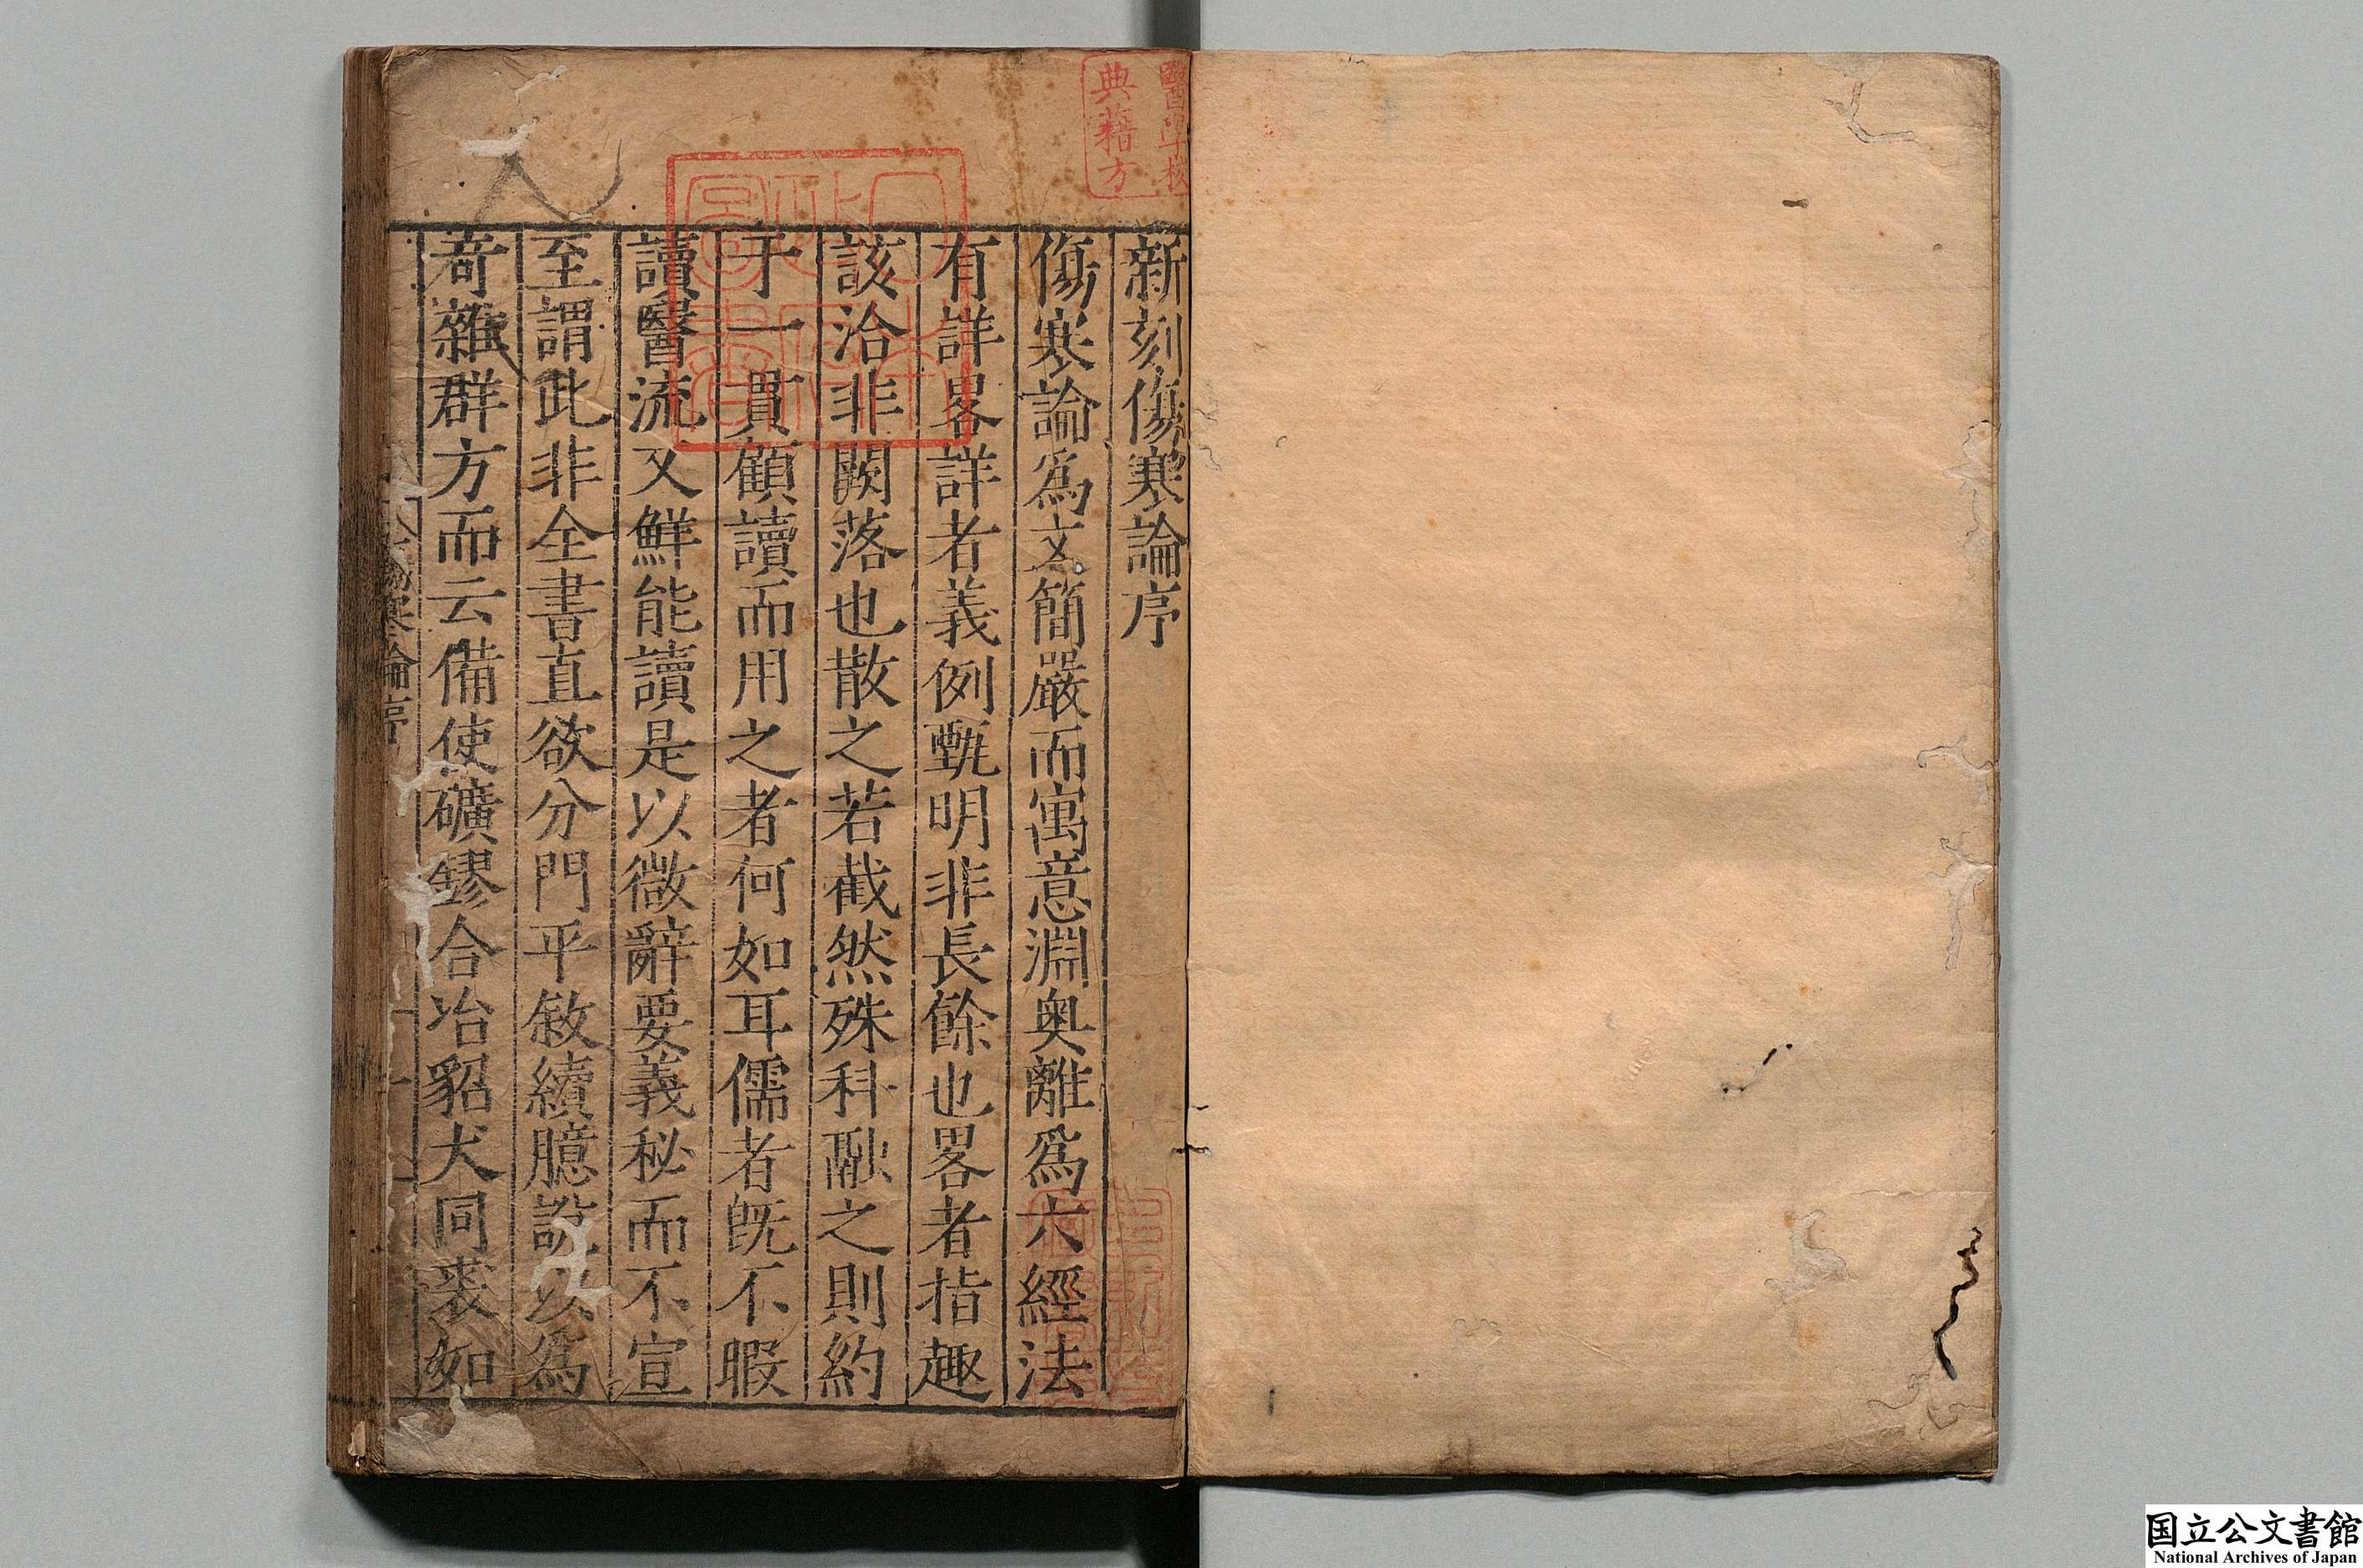 新刻傷寒論序
傷寒論為文簡嚴而寓意淵奥離為六經法
有詳畧詳者義例甄明非長餘也畧者指趣
該洽非闕落也散之若截然殊科融之則約
于一貫顧讀而用之者何如耳儒者旣不暇
讀醫流又鮮能讀是以微辭要義秘而不宣
至謂此非全書直欲分門平敘續臆說以為
奇雜群方而云備使礦鏐合冶貂犬同裘如
傷寒論序
醫學校
典藉方
国立公文書館
National Archives of Japan